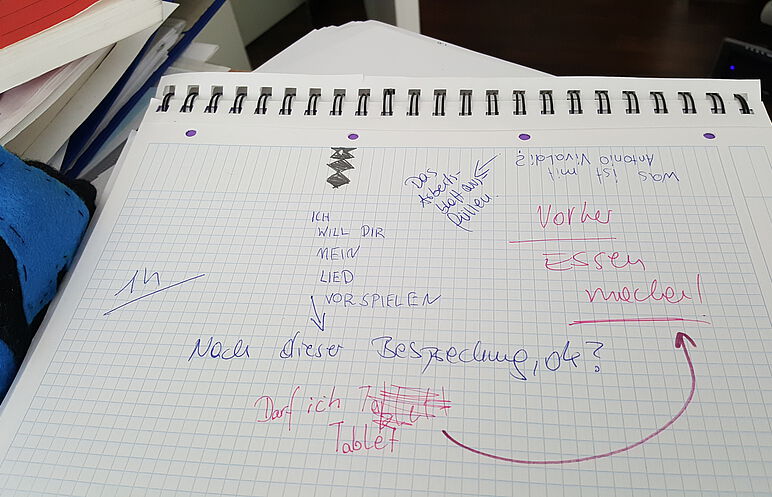 was ist mit
Antonio Vivaldi?
Das
Arbeits-
blatt aus
füllen.
Vorher
Essen
machen!
ICH
WILL DIR
MEIN
LIED
VORSPIELEN
1h
Nach dieser Besprechung, ok?
Darf ich
Tablet